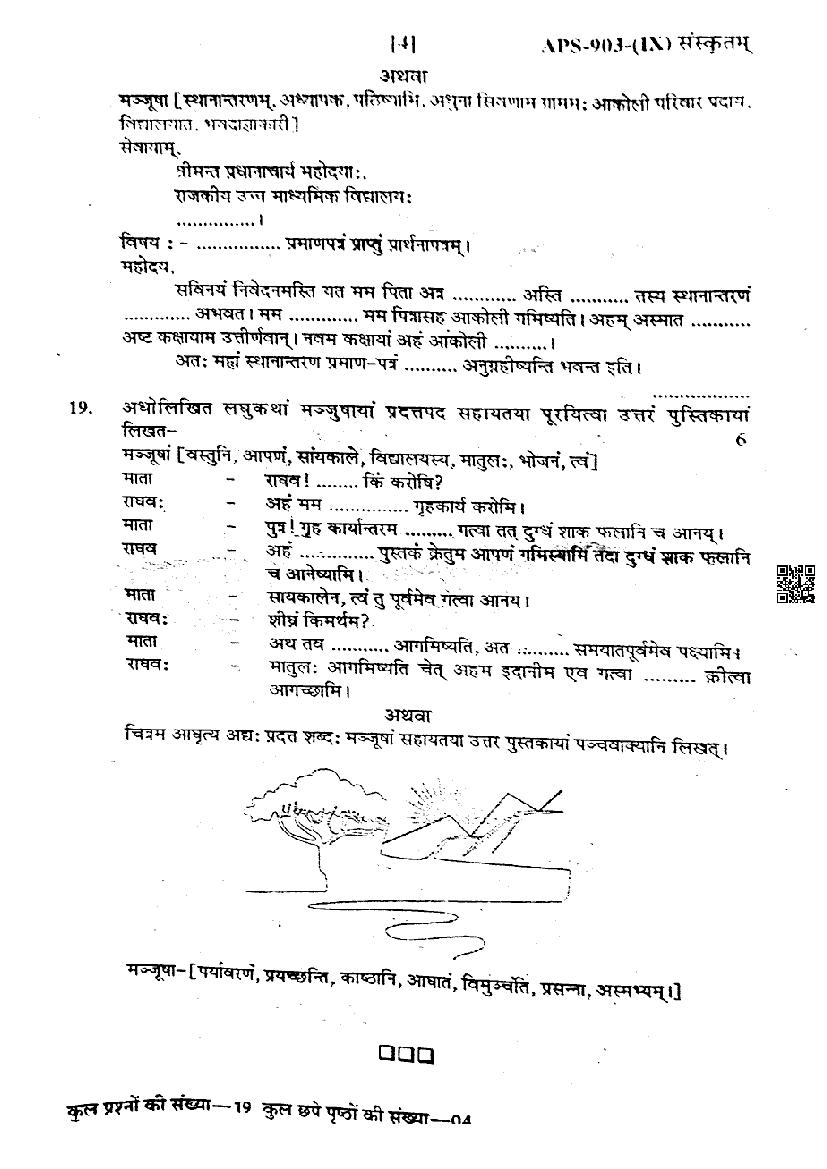 |4| APS-903-(IX) संस्कृतम्
अथवा
मञ्जूषा [स्थानान्तरणम्, अध्यापक, पतिष्यामि, अधुना सिवणाम ग्रामम: आकोली परिवार प्रदाय,
विद्यालयात, भवदाज्ञाकारी]
सेवायाम्,
श्रीमन्त प्रधानाचार्य महोदया:,
राजकीय उच्च माध्यमिक विद्यालय:
...............।
विषय : - ................ प्रमाणपत्रं प्राप्तुं प्रार्थनापत्रम्।
महोदय,
सविनयं निवेदनमस्ति यत मम पिता अत्र ............ अस्ति ........... तस्य स्थानान्तरणं
............ अभवत। मम ............. मम पित्रासह आकोली गमिष्यति। अहम् अस्मात ...........
अष्ट कक्षायाम उत्तीर्णवान्। नवम कक्षायां अहं आंकोली ..........।
अत: मह्यं स्थानान्तरण प्रमाण-पत्रं .......... अनुग्रहीष्यन्ति भवन्त इति।
...................
19. अधोलिखित लघुकथां मञ्जुषायां प्रदत्तपद सहायतया पूरयित्वा उत्तरं पुस्तिकायां
लिखत- 6
मञ्जूषां [वस्तुनि, आपणं, सांयकाले, विद्यालयस्य, मातुल:, भोजनं, त्वं]
माता - राघव! ........ किं करोषि?
राघव: - अहं मम ............... गृहकार्य करोमि।
माता - पुत्र! गृह कार्यान्तरम ......... गत्वा तत् दुग्धं शाक फलानि च आनय्।
राघव - अहं .............. पुस्तकं क्रेतुम आपणं गमिस्यामि तदा दुग्धं शाक फलानि
च आनेष्यामि।
माता - सायकालेन, त्वं तु पूर्वमेव गत्वा आनय।
राघव: - शीघ्रं किमर्थम?
माता - अथ तव ........... आगमिष्यति, अत .......... समयातपूर्वमेव पक्ष्यामि।
राघव: - मातुल: आगमिष्यति चेत् अहम इदानीम एव गत्वा ......... क्रीत्वा
आगच्छामि।
अथवा
चित्रम आधृत्य अद्य: प्रदत शब्द: मञ्जूषां सहायतया उत्तर पुस्तकायां पञ्चवाक्यानि लिखत्।
मञ्जूषा-[पर्यावरणं, प्रयच्छन्ति, काष्ठानि, आघातं, विमुञ्चति, प्रसन्ना, अस्मभ्यम्।]
कुल प्रश्नों की संख्या—19 कुल छपे पृष्ठों की संख्या—04